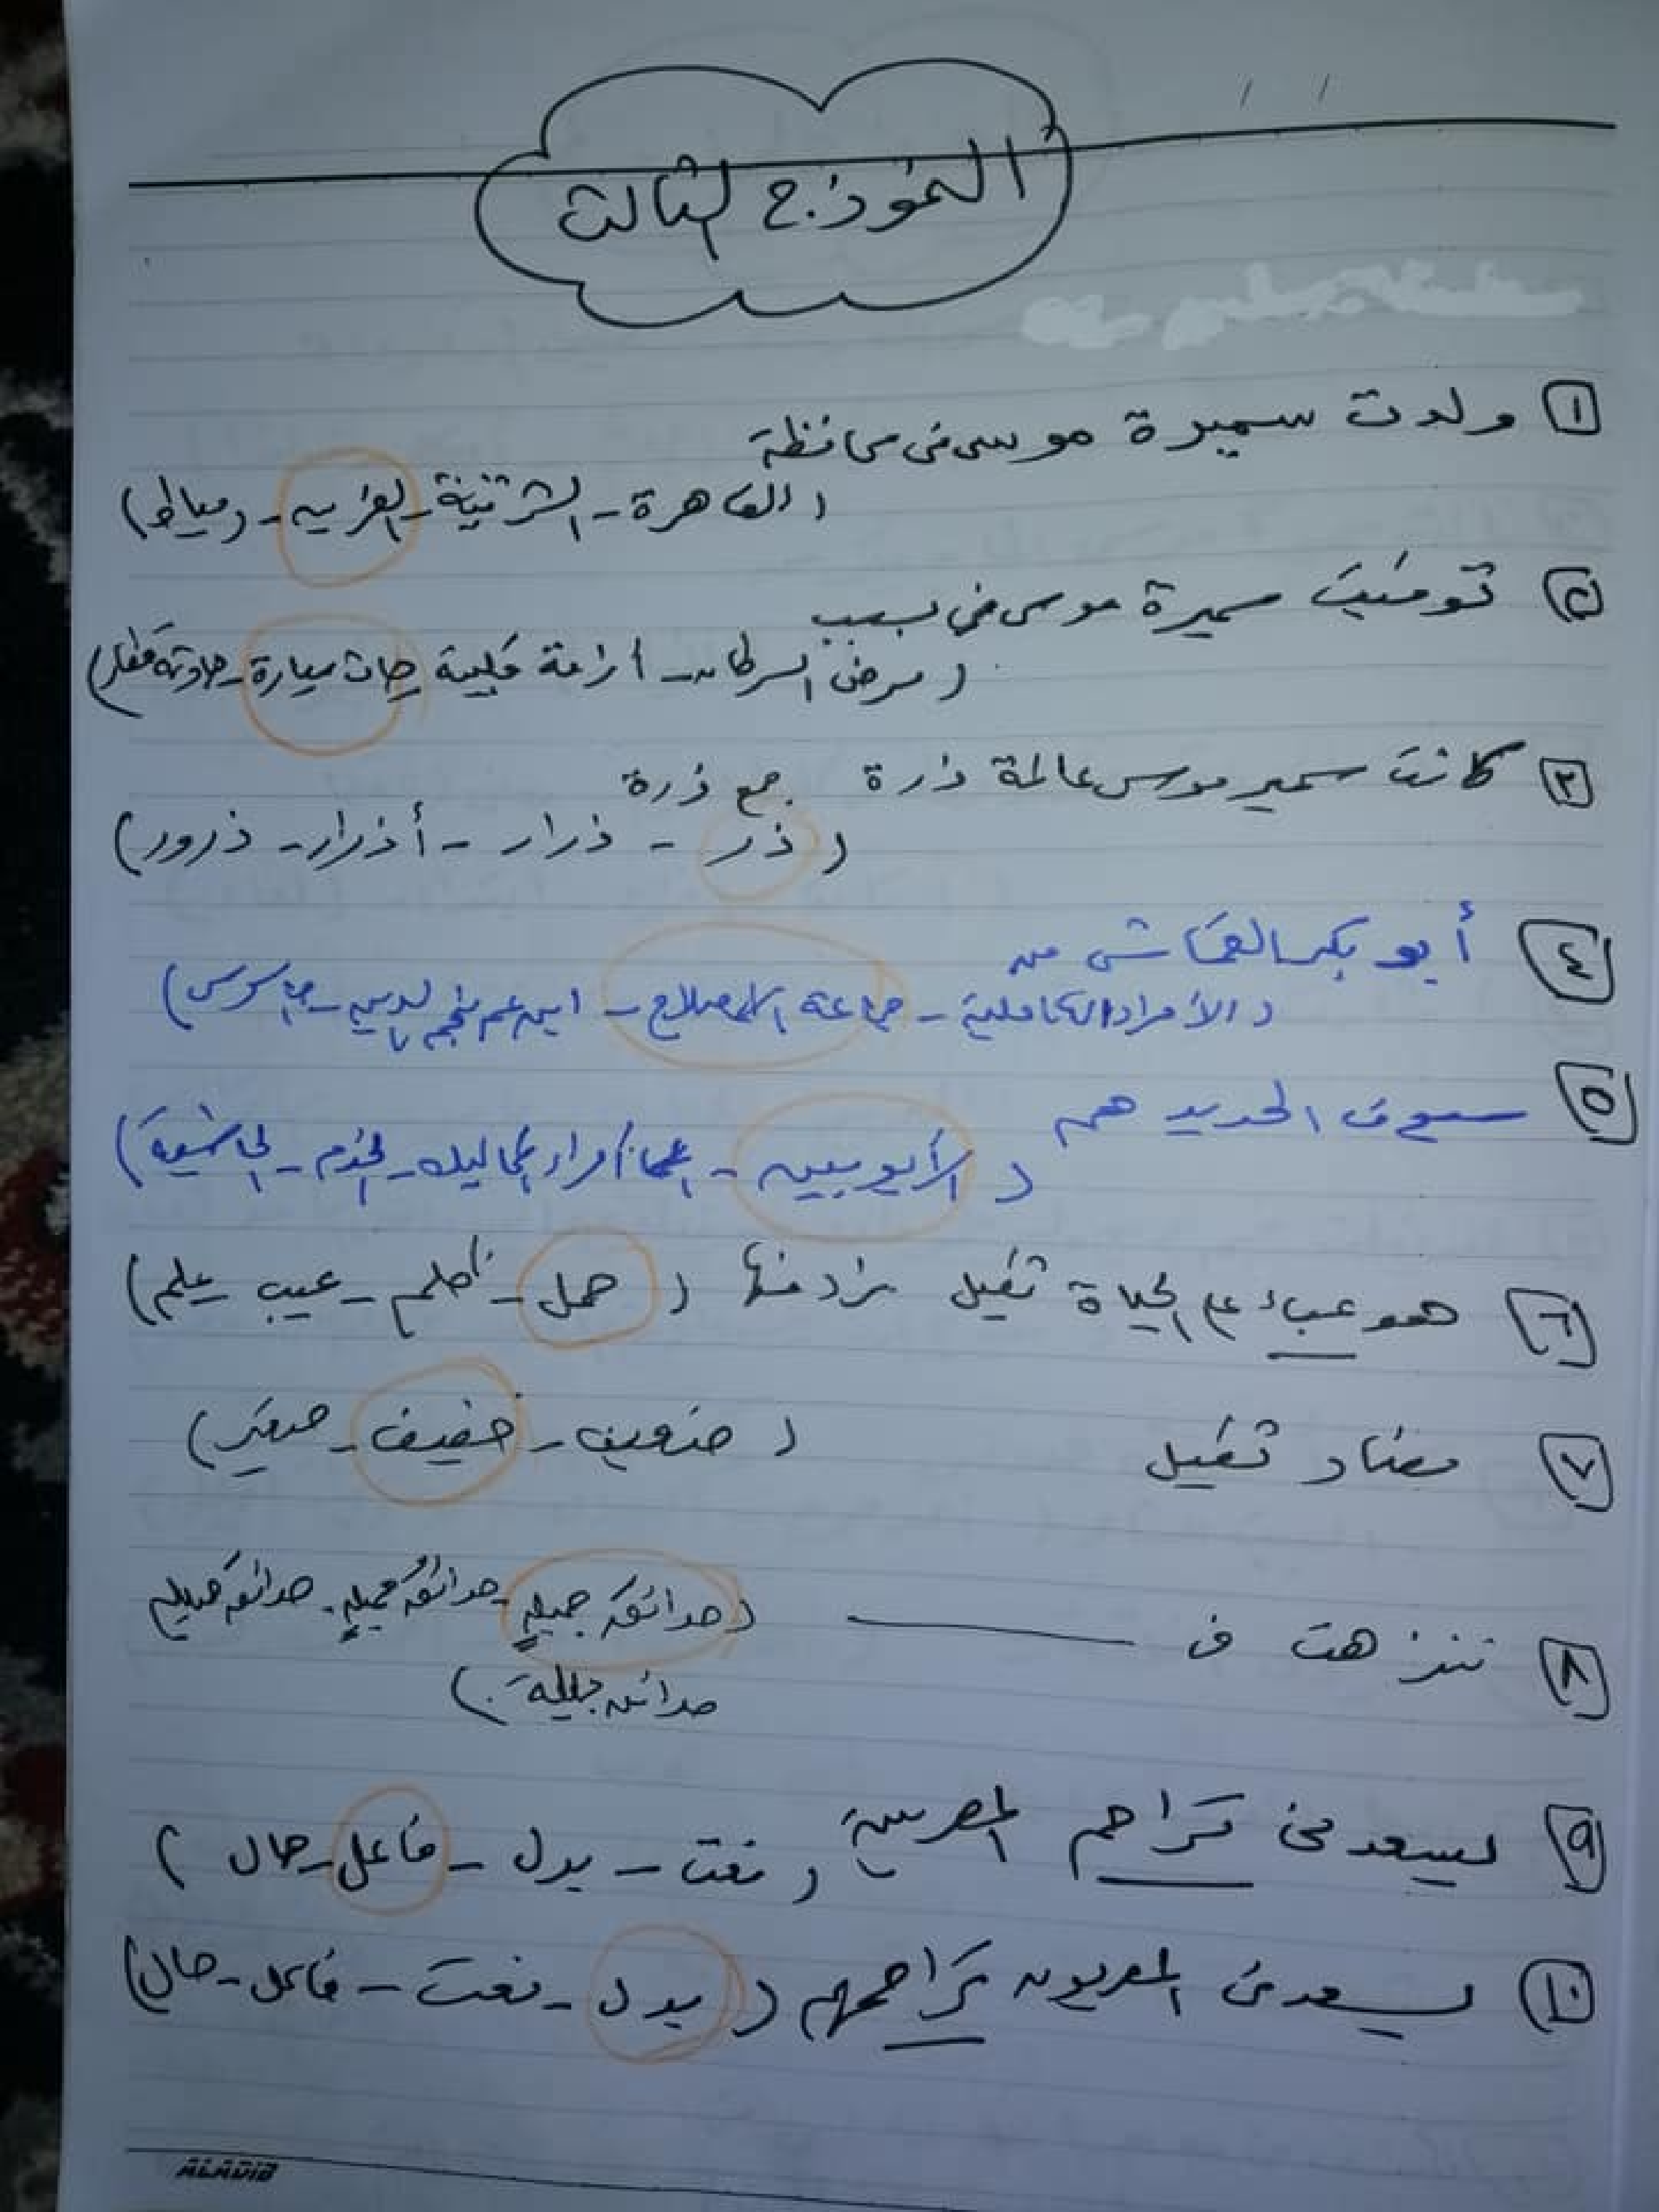 النموذج الثالث
١ ولدت سميرة موسى فى محافظة
(القاهرة - الشرقية - الغربيه - دمياط)
٢ توفيت سميرة موسى فى بسبب
(مرض السرطان - أزمة قلبية - حادث سيارة - حادثة قطار)
٣ كانت سمير موسى عالمة ذرة جمع ذرة
(ذر - ذرار - أذرار - ذرور)
٤ أبو بكر القماش من
(الأمراد الكاملية - جماعة المصلاح - ابن عم نجم الدين - جاسوس)
٥ سوف الحديد هم
(الأيوبيين - أمراء المماليك - الخدم - الحاشية)
٦ هو عبء على الحياة ثقيل مرادفها (حمل - ظلم - عيب - علم)
٧ مضاد ثقيل (ضعيف - خفيف - صغير)
٨ تنزهت فى ـــــــ (حدائقَ جميلةٍ - حدائقُ جميلةٍ - حدائق جميلة
حدائق جميلةَ)
٩ يسعدنى تراحم المصريين (نعت - بدل - فاعل - حال)
١٠ يسعدنى المصريون تراحمهم (بدل - نعت - فاعل - حال)
ALADIB